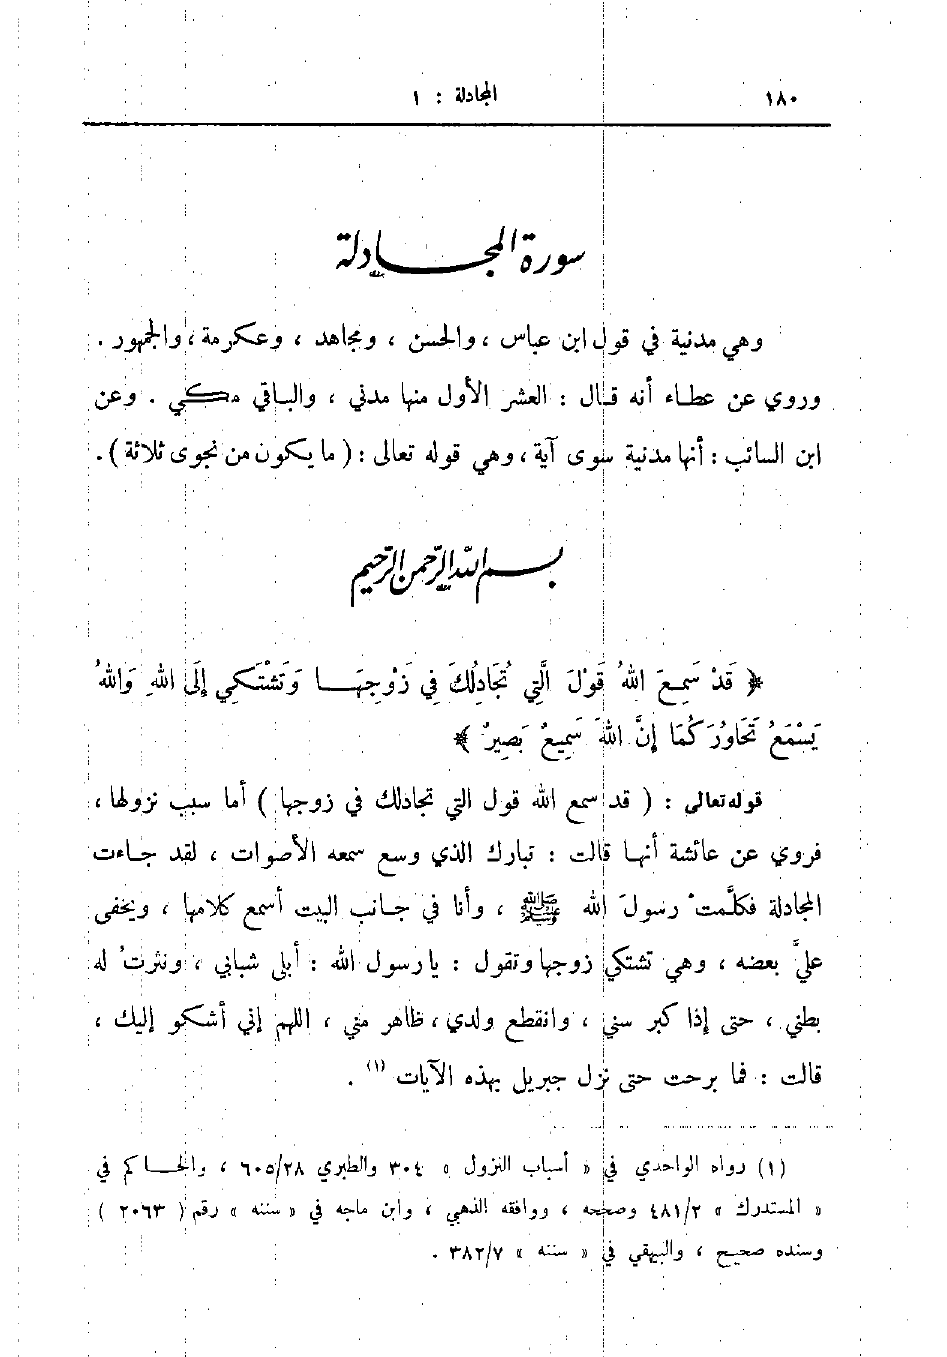 ١٨٠
المجادلة : ١
سورة المجادلة
وهي مدنية في قول ابن عباس ، والحسن ، ومجاهد ، وعكرمة ، والجمهور .
وروي عن عطاء أنه قال : العشر الأول منها مدني ، والباقي مكي . وعن
ابن السائب : أنها مدنية سوى آية ، وهي قوله تعالى : ( ما يكون من نجوى ثلاثة ) .
بسم الله الرحمن الرحيم
﴿ قَدْ سَمِعَ اللهُ قَوْلَ الَّتِي تُجَادِلُكَ فِي زَوْجِهَا وَتَشْتَكِي إِلَى اللهِ وَاللهُ
يَسْمَعُ تَحَاوُرَكُمَا إِنَّ اللهَ سَمِيعٌ بَصِيرٌ ﴾
قوله تعالى : ( قد سمع الله قول التي تجادلك في زوجها ) أما سبب نزولها ،
فروي عن عائشة أنها قالت : تبارك الذي وسع سمعه الأصوات ، لقد جاءت
المجادلة فكلَّمتْ رسولَ الله ﷺ ، وأنا في جانب البيت أسمع كلامها ، ويخفى
عليَّ بعضه ، وهي تشتكي زوجها وتقول : يا رسول الله : أبلى شبابي ، ونثرتُ له
بطني ، حتى إذا كبر سني ، وانقطع ولدي ، ظاهر مني ، اللهم إني أشكو إليك ،
قالت : فما برحت حتى نزل جبريل بهذه الآيات (١) .
(١) رواه الواحدي في « أسباب النزول » ٣٠٤ والطبري ٦٠٥/٢٨ ، والحاكم في
« المستدرك » ٤٨١/٢ وصححه ، ووافقه الذهبي ، وابن ماجه في « سننه » رقم ( ٢٠٦٣ )
وسنده صحيح ، والبيهقي في « سننه » ٣٨٢/٧ .